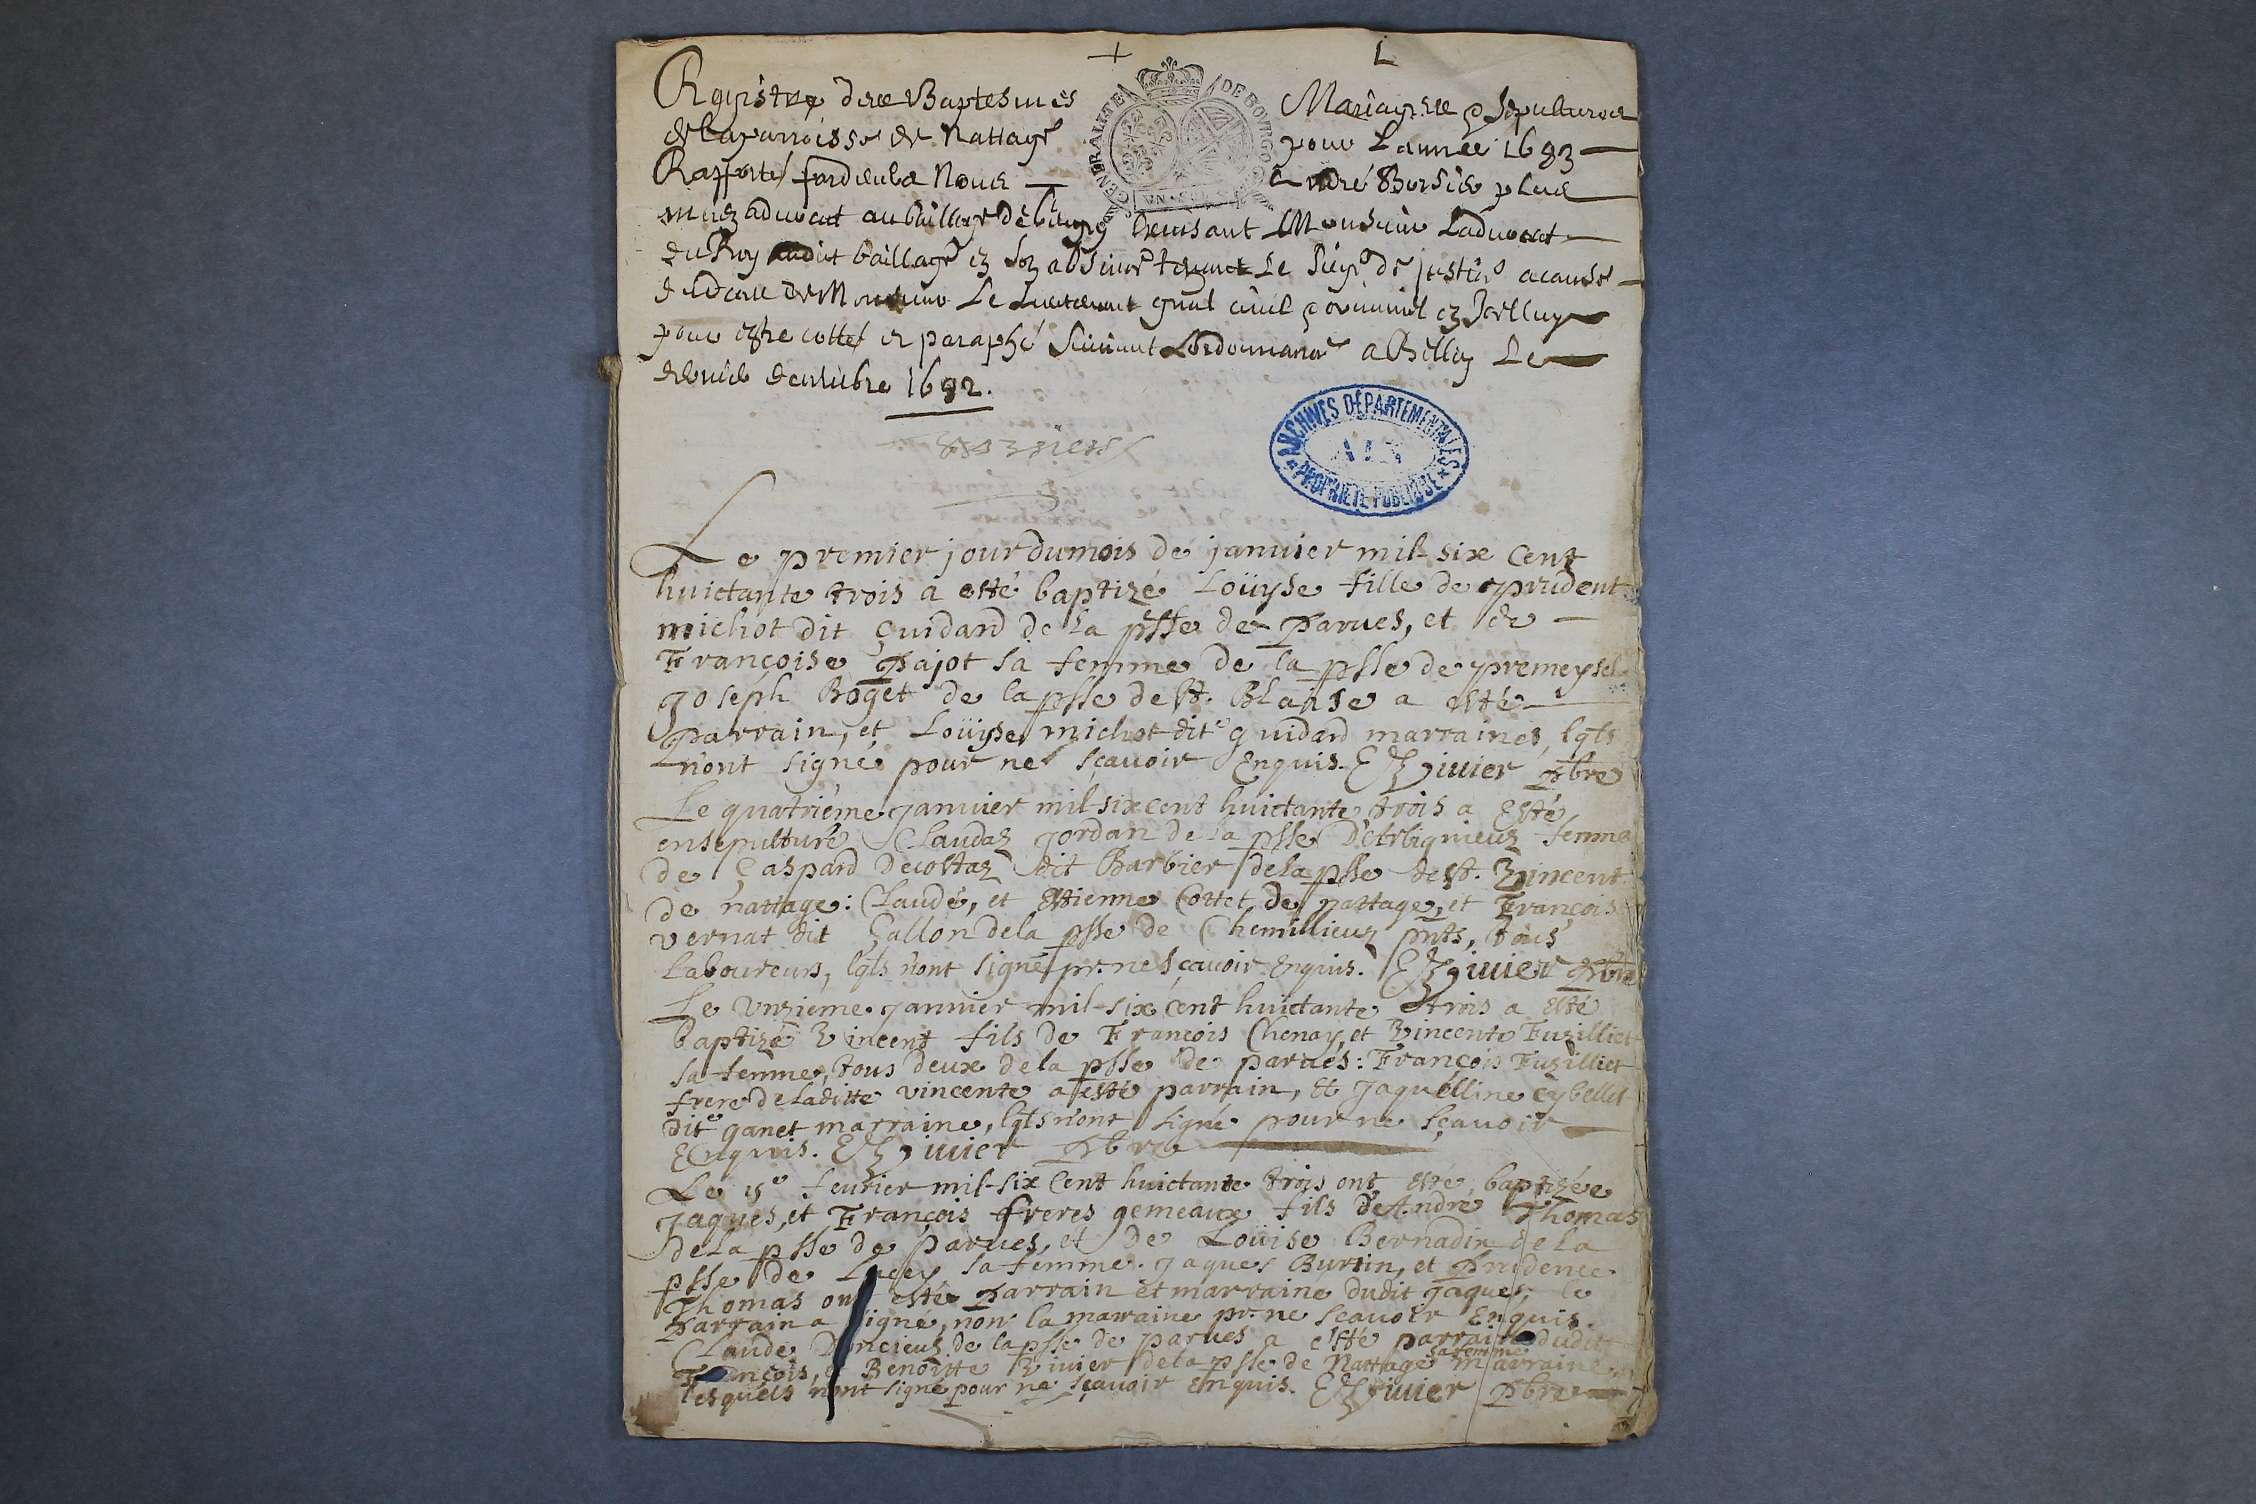 + L
Registre des Baptesmes Mariages & sepultures
de la parroisse de Nattage pour Lannée 1683
GENERALITE DE BOVRGO
VN
Rapporté pardevant Nous André
advocat au baillage de bugey Monsieur Ladvocat
du Roy audit baillage en son absence tenant Le siege de justice a cause
de Monsieur Le Lieutenant gnal civil & criminel
pour estre cotté et paraphé suivant Lordonnance a Belley Le
decembre 1682.
ARCHIVES DÉPARTEMENTALES
AIN
PROPRIÉTÉ PUBLIQUE
Le premier jour du mois de janvier mil-six cent
huictante trois a esté baptizé Loüyse fille de prudent
michot dit guidard de la psse de Parves, et de
Françoise Pajot sa femme de la psse de premeysel
Joseph Boget de la psse de St. Blaise a esté
Parrain, et Loüyse michot dite guidard marraines, lqls
n'ont signé pour ne sçavoir Enquis. E Rivier Pbre
Le quatriéme janvier mil-six cent huictante trois a Esté
ensepulturé Claudaz Jordan de la psse D'Arbignieuz femme
de Gaspard Decostaz dit Barbier de la psse de St. Vincent
de nattage: Claude, et Estienne Cottet de nattage, et François
vernat dit Gallon de la psse de Chemillieuz pnts, tous
Laboureurs, lqls n'ont signé pr. ne sçavoir Enquis. E Rivier Pbre
Le unziéme janvier mil-six cent huictante trois a esté
baptizé Vincent fils de François Chenay, et Vincente Fuzilliet
sa femme, tous deux de la psse de parves: François Fuzilliet
frere de laditte vincente a esté parrain, et Jaquelline Cybellet
dite ganet marraine, lqls n'ont signé pour ne sçavoir
Enquis. E Rivier Pbre
Le 15e fevrier mil-six Cent huictante trois ont esté baptizée
Jaques, et François freres gemeaux fils de André Thomas
de La psse de parves, et de Loüise Bernadin de la
psse de Lucey sa femme. Jaques Burtin, et Prudence
Thomas ont esté Parrain et marraine dudit Jaques, le
Parrain a signé, non la marraine pr. ne scavoir Enquis.
Claude Doncieuz de la psse de parves a esté parrain dudit
François, et Benoitte Rivier sa femme de la psse de Nattage marraine,
lesquels n'ont signé pour ne sçavoir Enquis. E Rivier Pbre